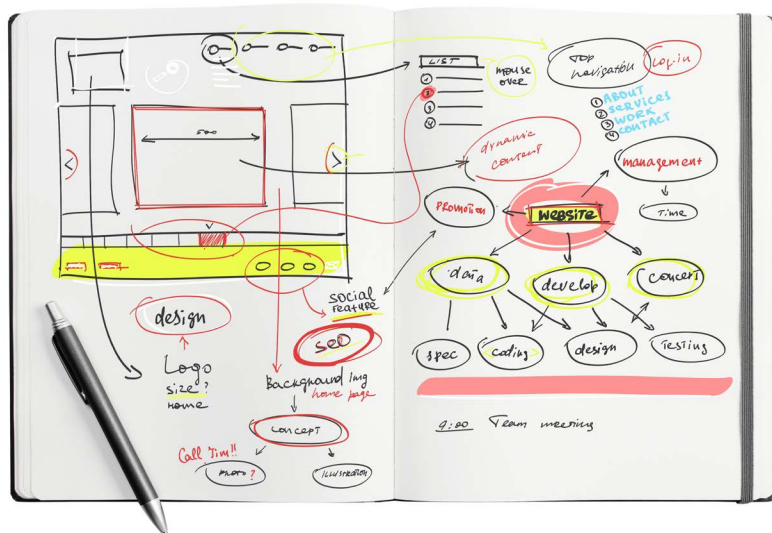 500
design
Logo
size?
HOME
SOCIAL
FEATURE
SEO
Background Img
home page
CONCEPT
Call Jim!!
PHOTO?
ILLUSTRATION
LIST
1
2
3
4
mouse
over
TOP
navigation
Login
1 ABOUT
2 SERVICES
3 WORK
4 CONTACT
dynamic
content
management
Time
PROMOTION
WEBSITE
data
develop
concept
spec
coding
design
Testing
9:00 Team meeting